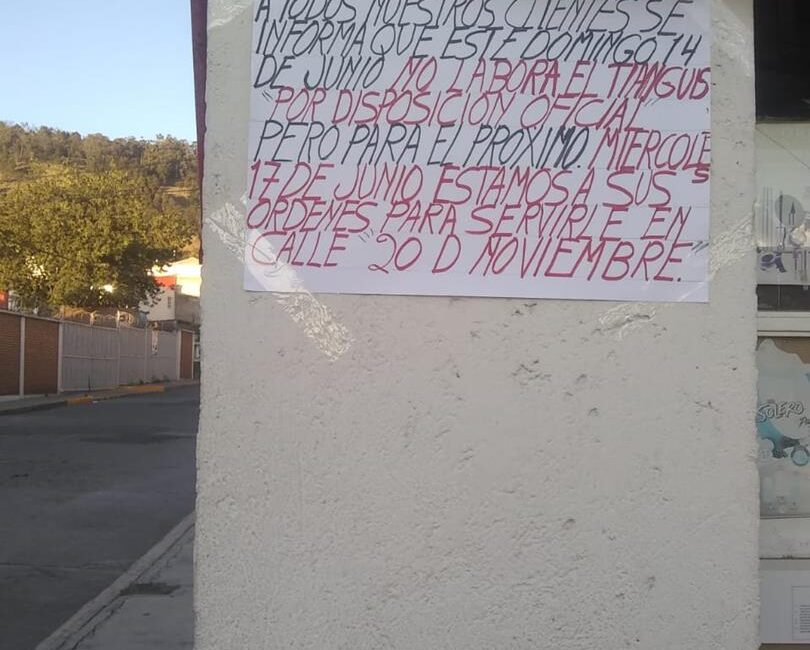 A TODOS NUESTROS CLIENTES SE
INFORMA QUE ESTE DOMINGO 14
DE JUNIO NO LABORA EL TIANGUIS
"POR DISPOSICION OFICIAL"
PERO PARA EL PROXIMO. MIERCOLES
17 DE JUNIO ESTAMOS A SUS
ORDENES PARA SERVIRLE EN
CALLE "20 D NOVIEMBRE."
SOLERO